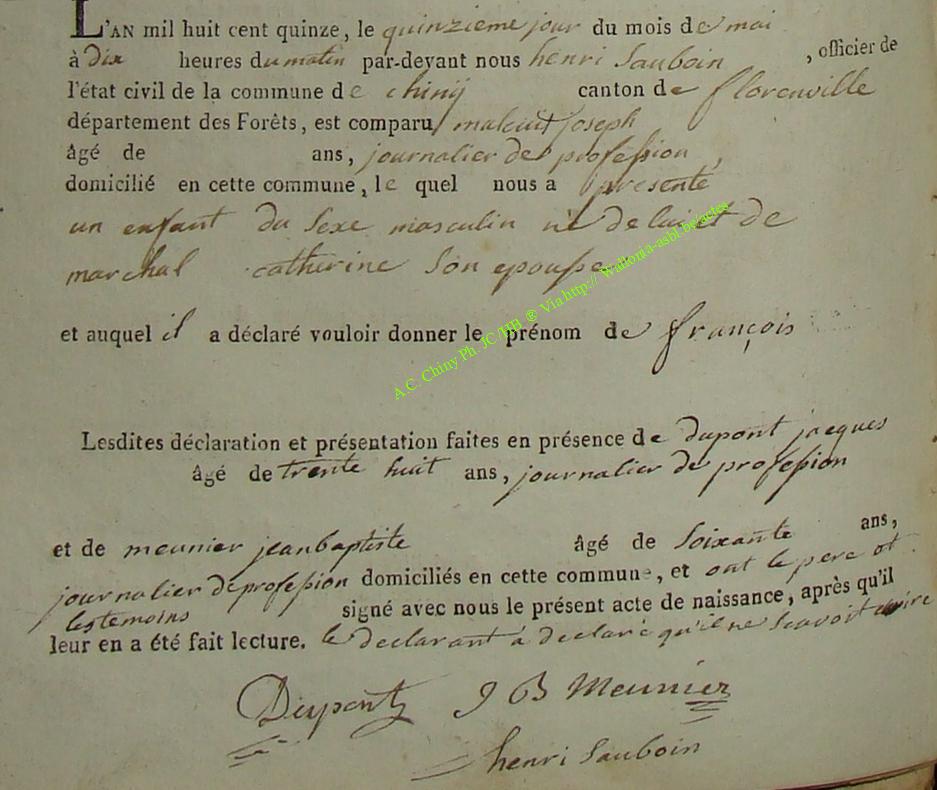 L'AN mil huit cent quinze, le quinzieme jour du mois de mai
à dix heures du matin par-devant nous henri Sauboin , officier de
l'état civil de la commune de chinÿ canton de florenville
département des Forêts, est comparu joseph
âgé de ans, journalier de profession ,
domicilié en cette commune, le quel nous a presenté
un enfant du Sexe masculin né de lui et de
marchal catherine Son epouse
et auquel il a déclaré vouloir donner le prénom de françois
Lesdites déclaration et présentation faites en présence de dupont jacques
âgé de trente huit ans, journalier de profession
et de meunier jeanbaptiste âgé de Soixante ans,
journalier de profession domiciliés en cette commune, et ont le pere et
les temoins signé avec nous le présent acte de naissance, après qu'il
leur en a été fait lecture. le declarant à declaré qu'il ne Scavoit
Dupont J B Meunier
henri Sauboin
A.C. Chiny Ph. JC /HB ® Via http:// Wallonia-asbl.be/actes